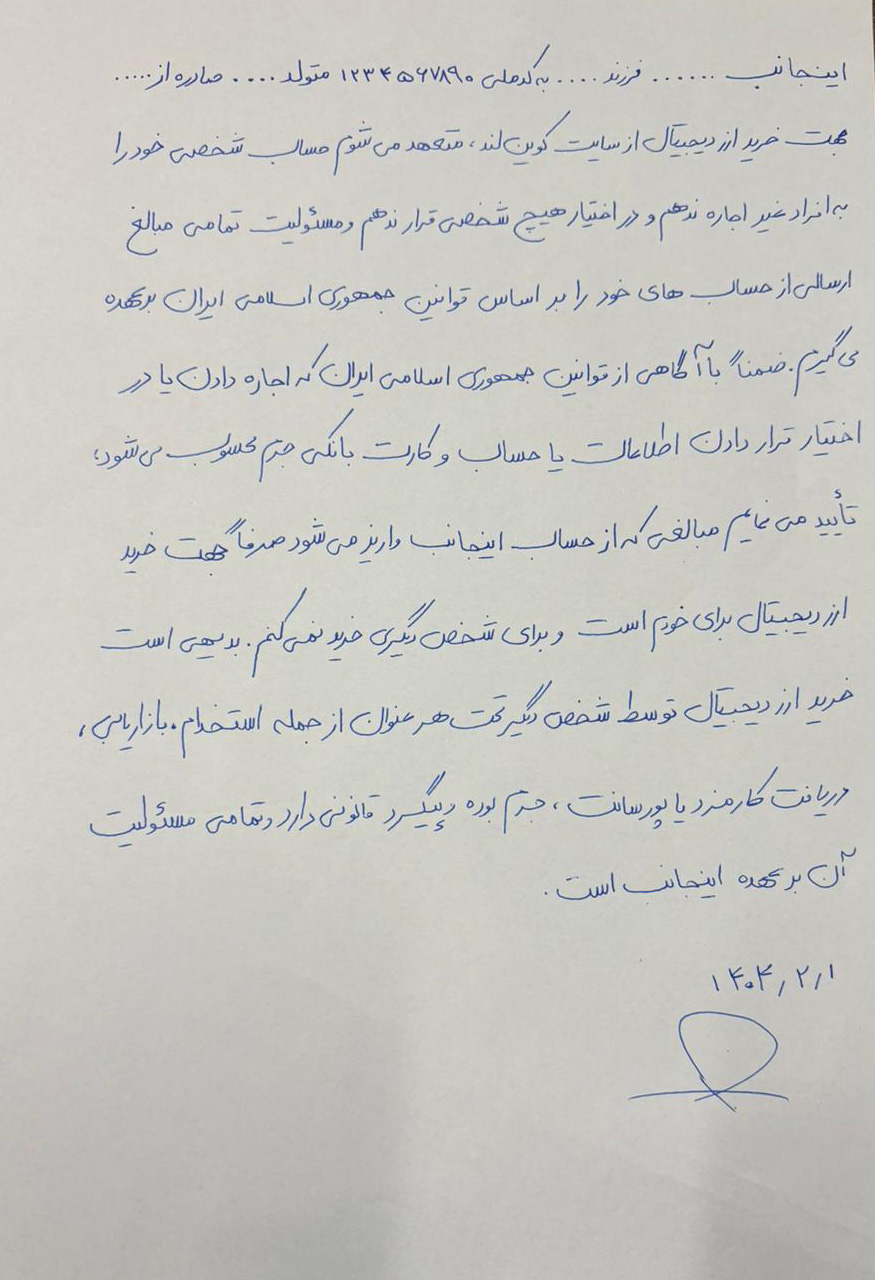 اینجانب ....... فرزند .... به کدملی ۱۲۳۴۵۶۷۸۹۰ متولد .... صادره از .....
جهت خرید ارز دیجیتال از سایت کوین لند، متعهد می شوم حساب شخصی خود را
به افراد غیر اجاره ندهم و در اختیار هیچ شخصی قرار ندهم و مسئولیت تمامی مبالغ
ارسالی از حساب های خود را بر اساس قوانین جمهوری اسلامی ایران بر عهده
می گیرم. ضمناً با آگاهی از قوانین جمهوری اسلامی ایران که اجاره دادن یا در
اختیار قرار دادن اطلاعات یا حساب و کارت بانکی جرم محسوب می شود،
تأیید می نمایم مبالغی که از حساب اینجانب واریز می شود صرفاً جهت خرید
ارز دیجیتال برای خودم است و برای شخص دیگری خرید نمی کنم. بدیهی است
خرید ارز دیجیتال توسط شخص دیگر تحت هر عنوان از جمله استخدام، بازاریابی،
دریافت کارمزد یا پورسانت، جرم بوده و پیگرد قانونی دارد و تمامی مسئولیت
آن بر عهده اینجانب است.
۱۴۰۴/۲/۱